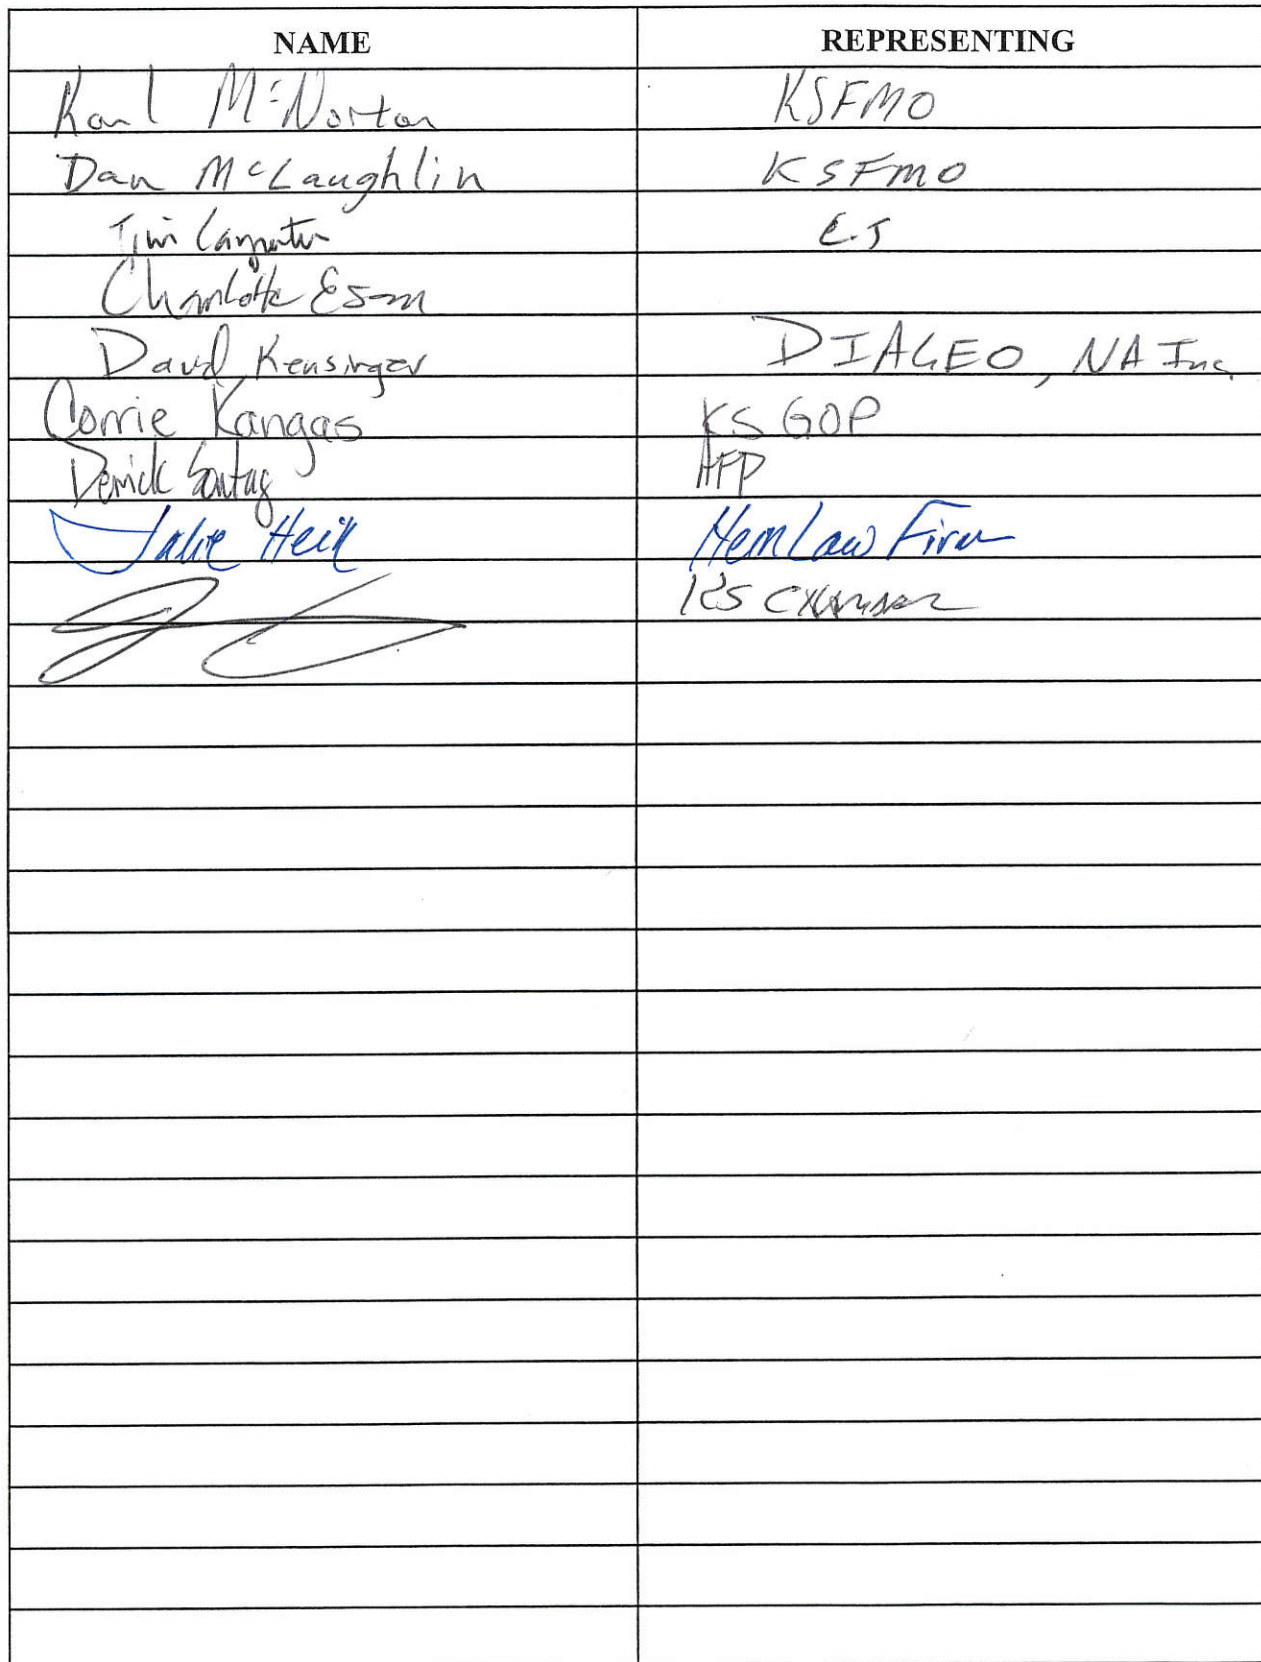 NAME REPRESENTING
Karl McNorton KSFMO
Dan McLaughlin KSFMO
Tim Carpenter CJ
Charlotte Esau
David Kensinger DIAGEO, NA Inc.
Corrie Kangas KS GOP
Derrick Sontag AFP
Julie Hein Hein Law Firm
KS Chamber